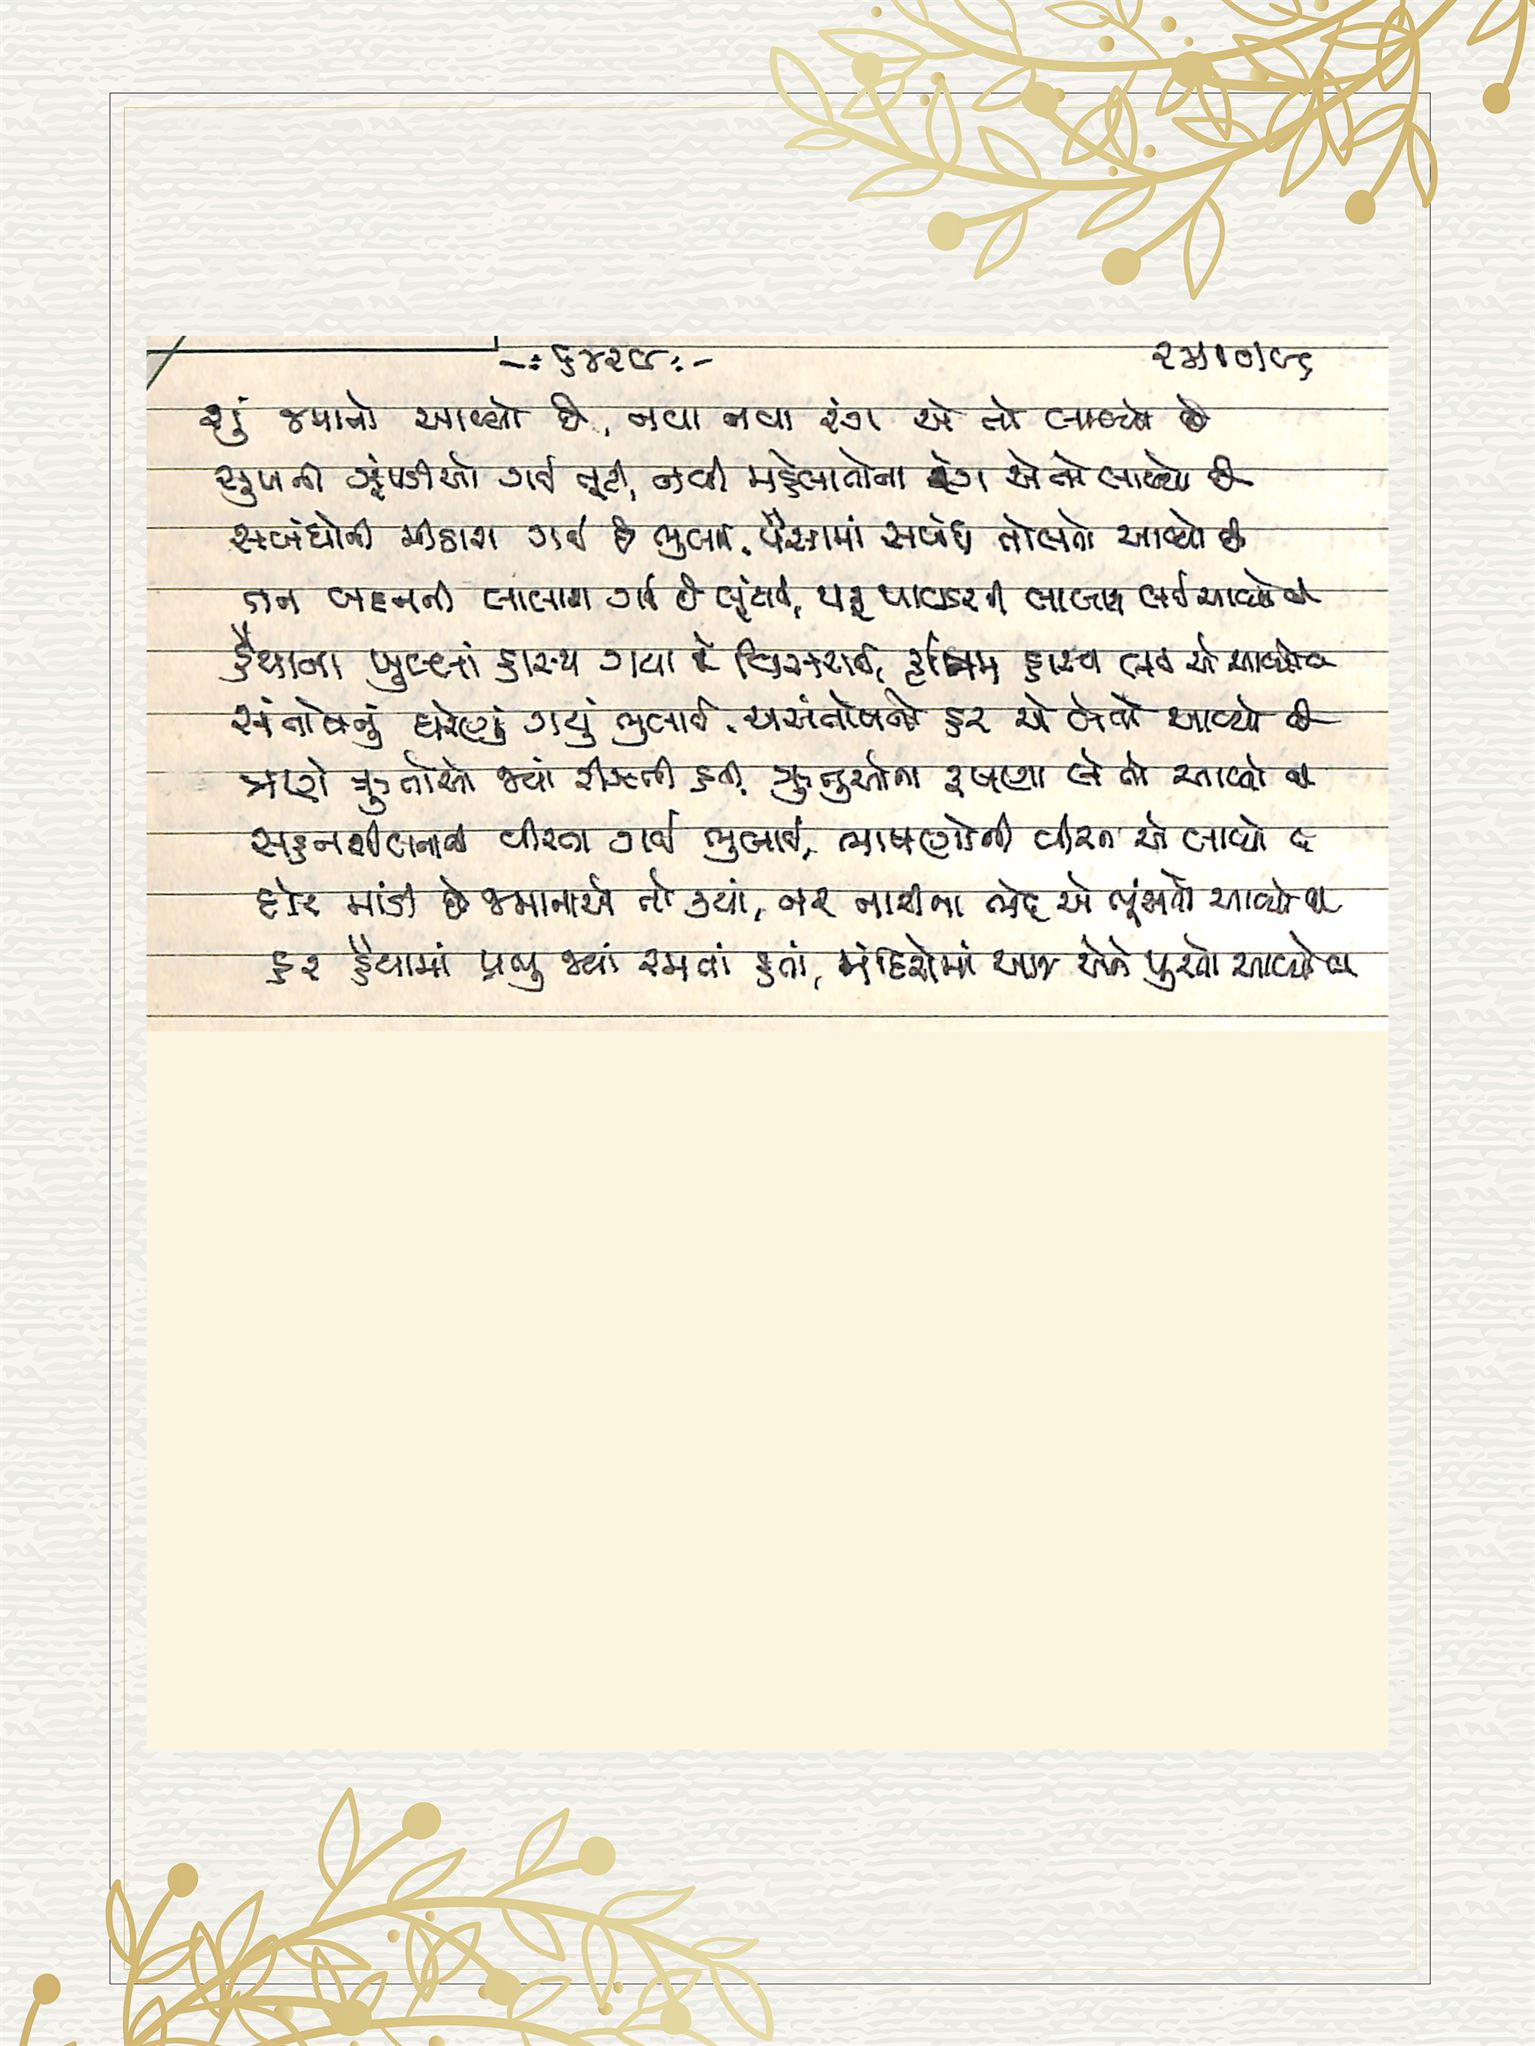 -: ૬૪૨૯ :-
૨૩/૧૦/૯૬
શું જમાનો આવ્યો છે, નવા નવા રંગ એ તો લાવ્યો છે
સુખની ઝૂંપડીઓ ગઈ તૂટી, નવી મહેલાતોના રંગ એ તો લાવ્યો છે
સબંધોની મીઠાશ ગઈ છે ભુલાઈ, પૈસામાં સબંધ તોલતો આવ્યો છે
તન બદનની લાલાશ ગઈ છે લૂંટાઈ, પફ પાવડરની લાલાશ લઈ આવ્યો છે
હૈયાના ખુલ્લાં હાસ્ય ગયા છે વિસરાઈ, કૃત્રિમ હાસ્ય લઈ એ આવ્યો છે
સંતોષનું ઘરેણું ગયું ભુલાઈ, અસંતોષનો હાર એ લેતો આવ્યો છે
ત્રણે ઋતુઓ જ્યાં રીઝતી હતી, ઋતુઓના રૂષણા લે તો આવ્યો છે
સહનશીલતાની વીરતા ગઈ ભુલાઈ, ભાષણોની વીરતા એ લાવ્યો છે
હોર માંડી છે જમાનાએ તો ક્યાં, નર નારીના ભેદ એ ભૂંસતો આવ્યો છે
હર હૈયામાં પ્રભુ જ્યાં રમતાં હતાં, મંદિરોમાં આજ એને પુરતો આવ્યો છે